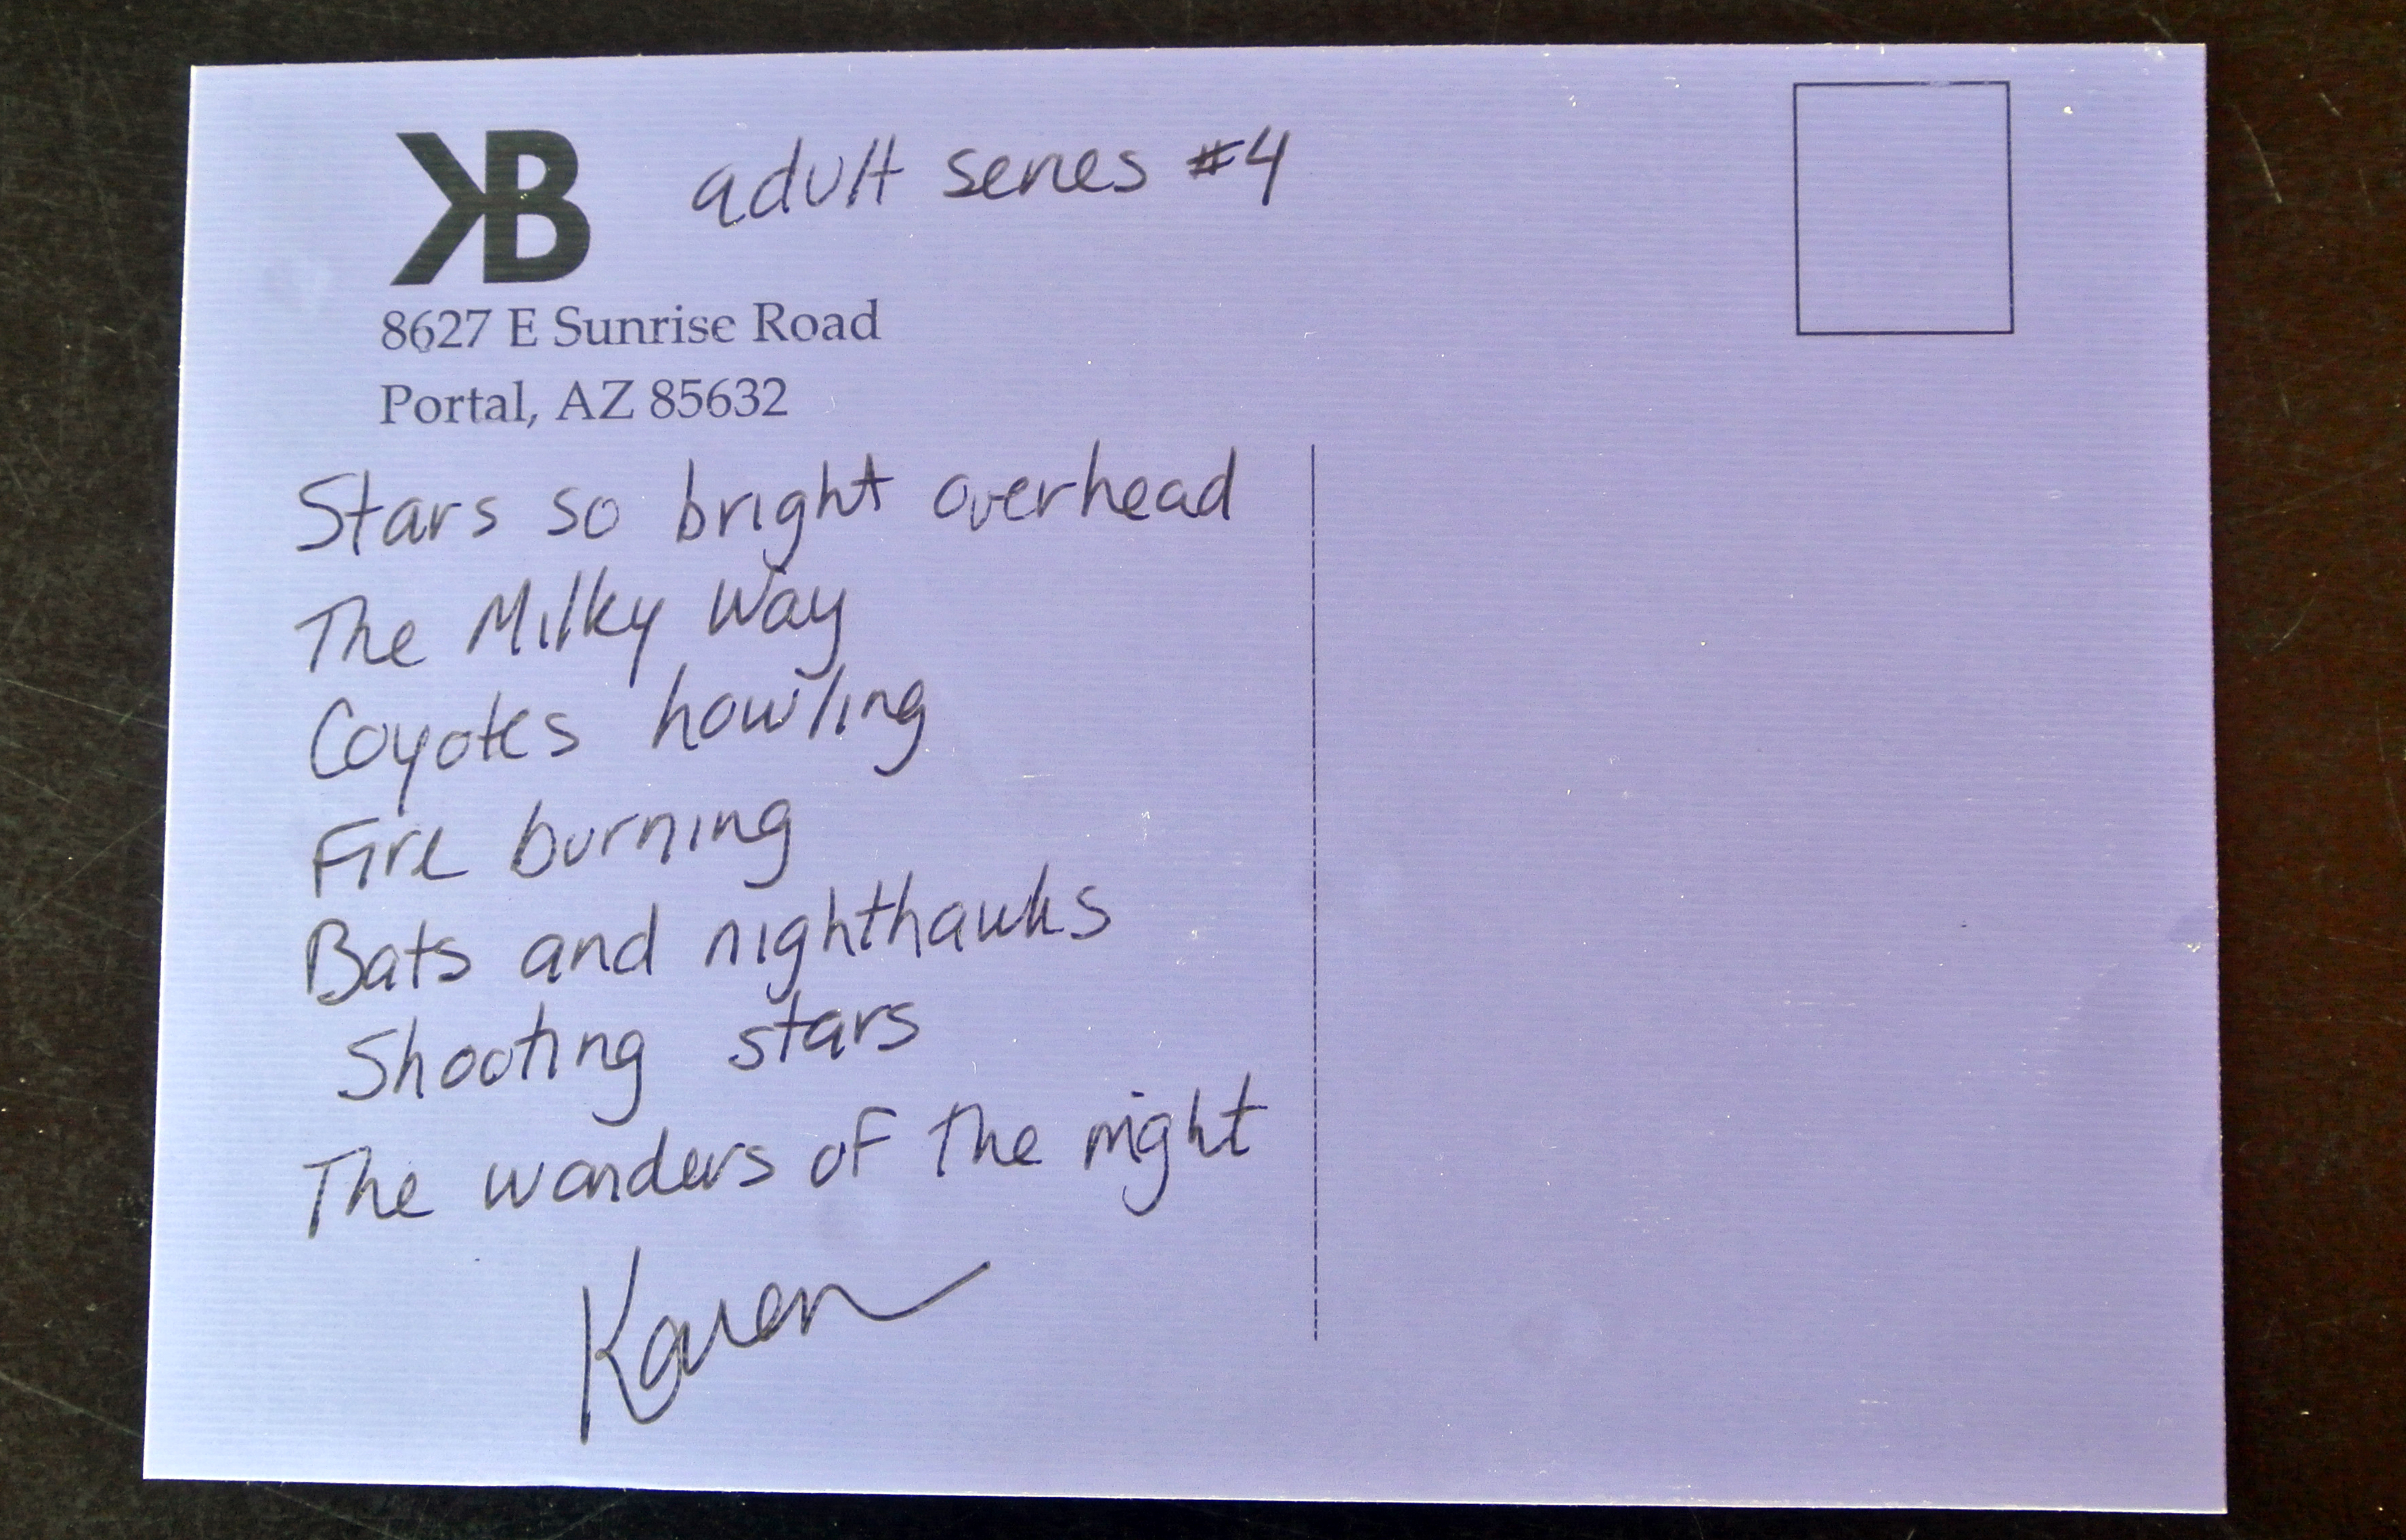 KB adult series #4
8627 E Sunrise Road
Portal, AZ 85632
Stars so bright overhead
The Milky Way
Coyotes howling
Fire burning
Bats and nighthawks
Shooting stars
The wonders of the night
Karen